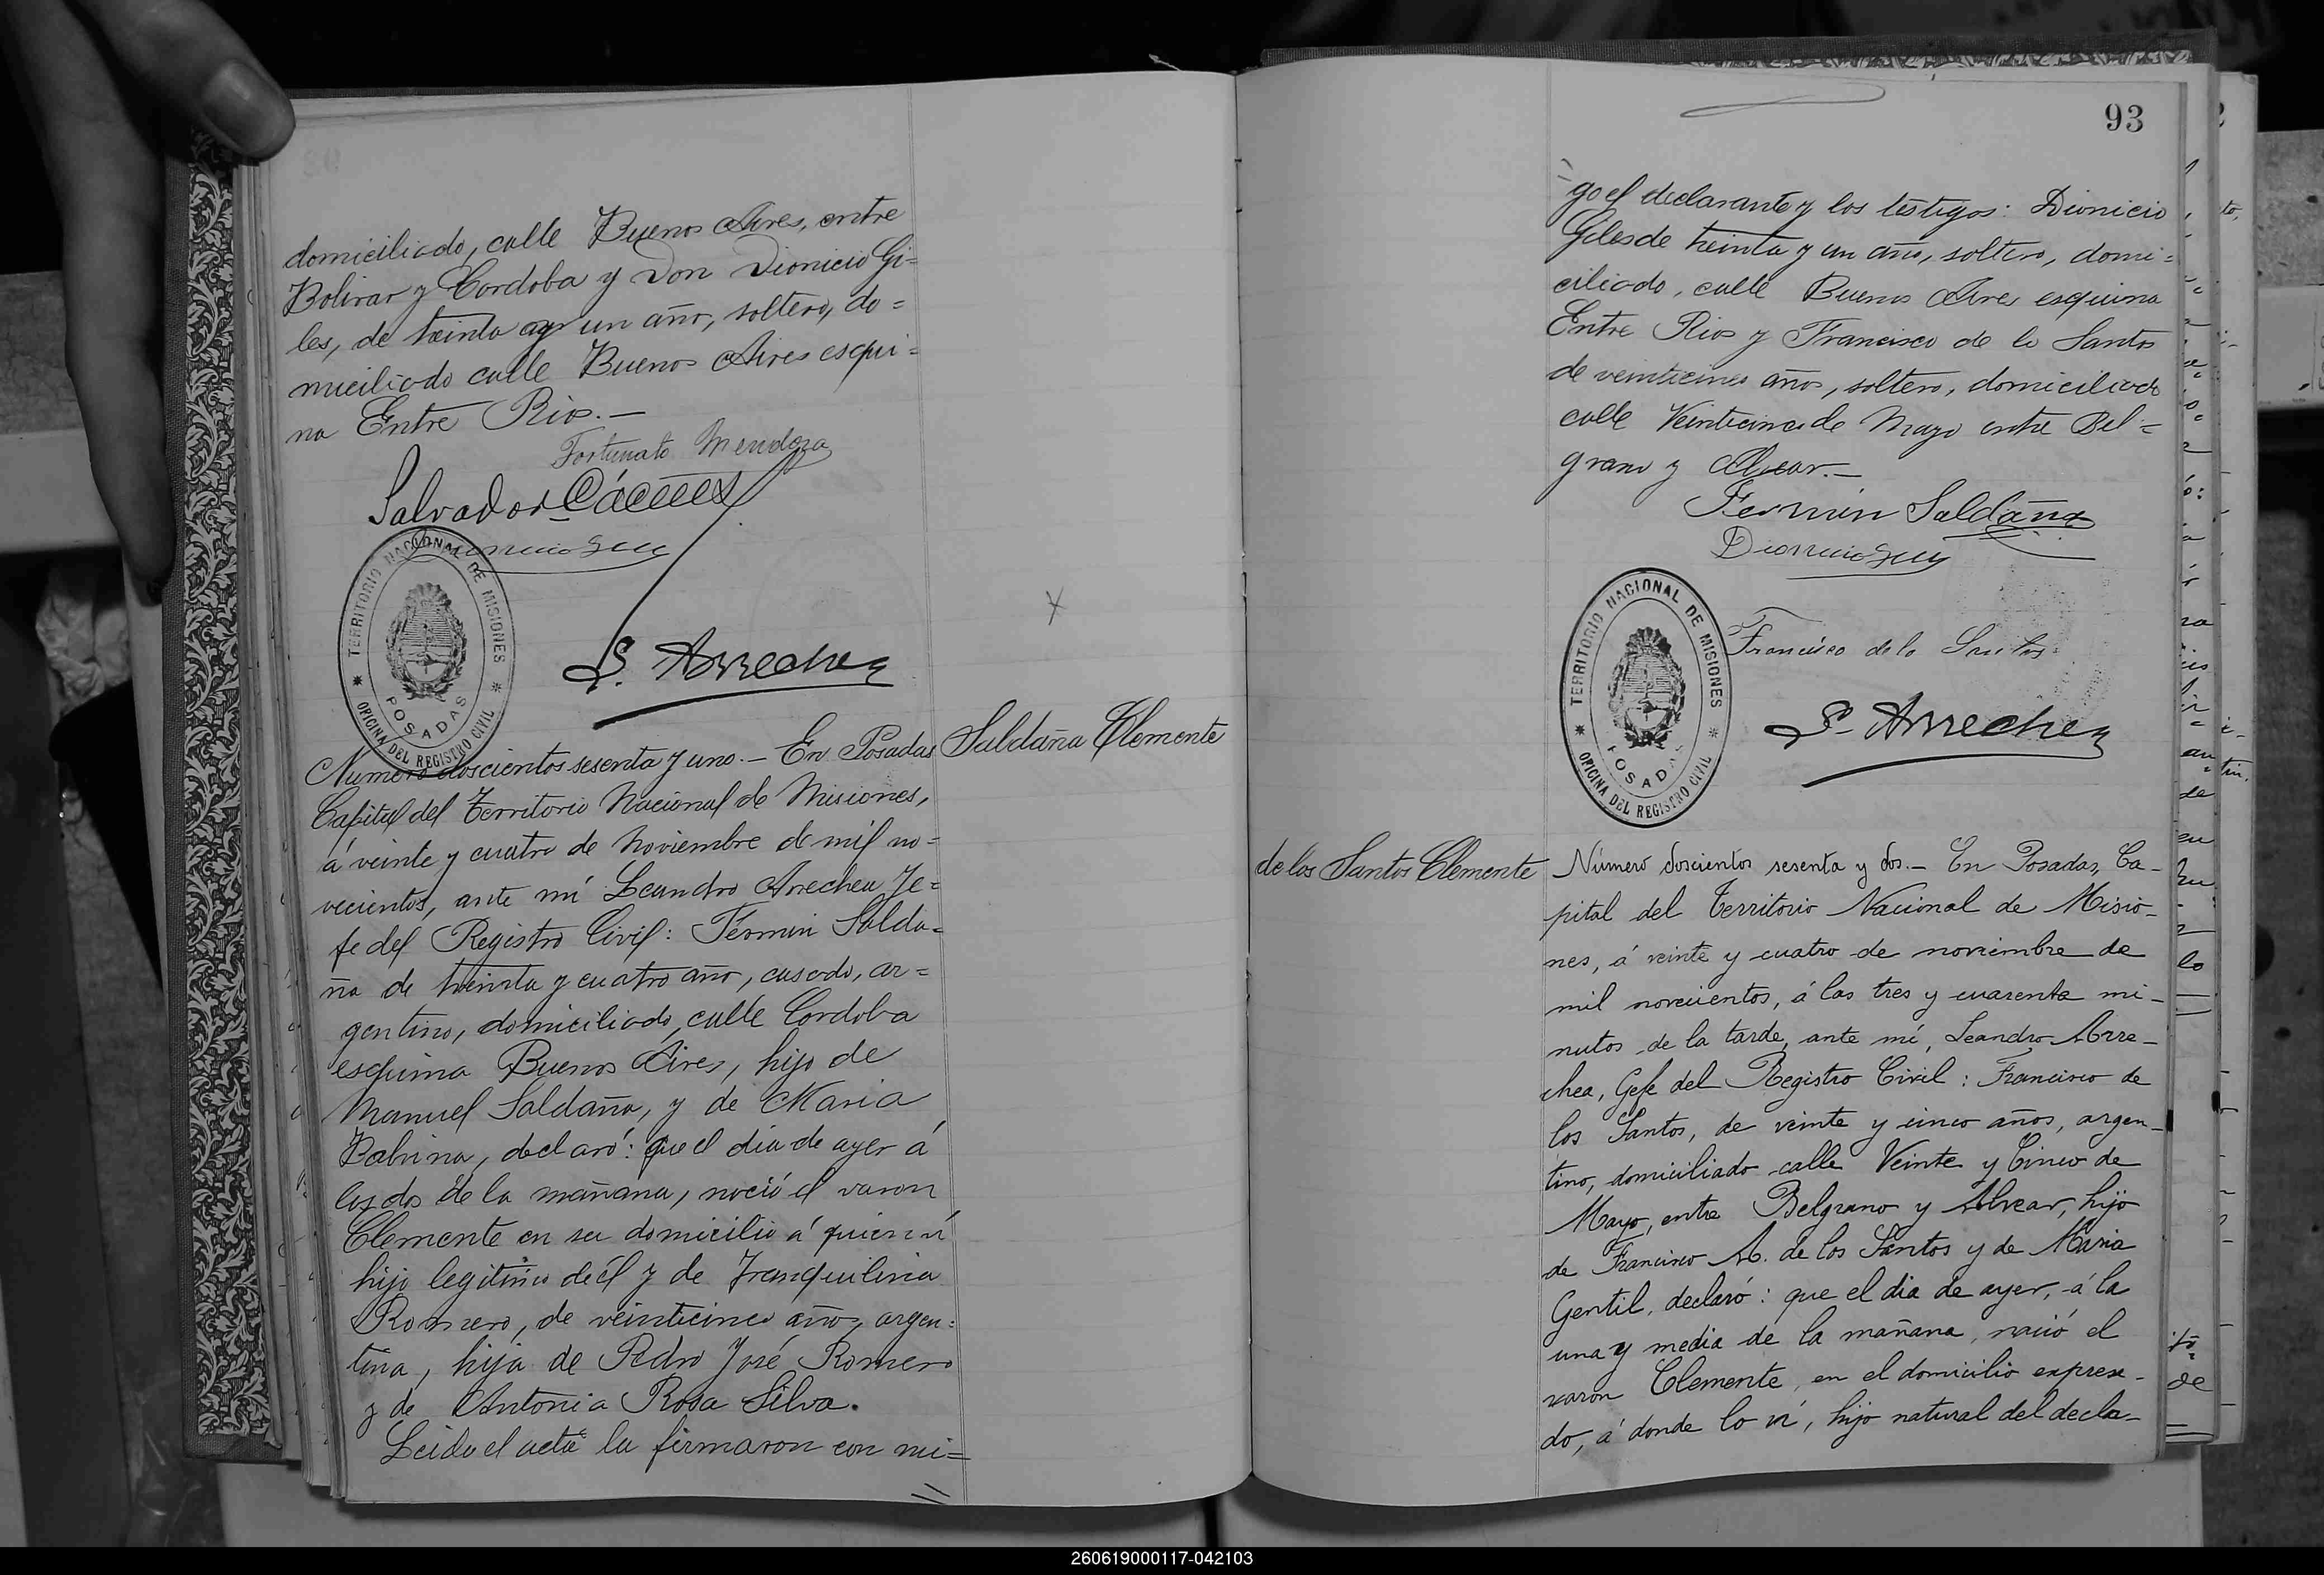 domiciliado, calle Buenos Aires, entre
Bolivar y Cordoba y Don Dionicio Gi=
les, de treinta y un año, soltero, do=
miciliado calle Buenos Aires esqui=
na Entre Rios.—
Fortunato Mendoza
Salvador Cáceres
TERRITORIO NACIONAL DE MISIONES
POSADAS
OFICINA DEL REGISTRO CIVIL
L. Arrechea
Numero doscientos sesenta y uno.— En Posadas
Saldaña Clemente
Capital del Territorio Nacional de Misiones,
á veinte y cuatro de Noviembre de mil no=
vecientos, ante mí Leandro Arrechea Je=
fe del Registro Civil: Fermin Salda=
ña de treinta y cuatro año, casado, ar=
gentino, domiciliado, calle Cordoba
esquina Buenos Aires, hijo de
Manuel Saldaña, y de Maria
declaró: que el dia de ayer á
las dos de la mañana, nació el varon
Clemente en su domicilio á quien ví
hijo legitimo de él y de Tranquilina
Romero, de veinticinco año, argen=
tina, hija de Pedro José Romero
y de Antonia Rosa Silva.
Leida el acta la firmaron con mi=
93
go el declarante y los testigos: Dionicio
Giles de treinta y un año, soltero, domi=
ciliado, calle Buenos Aires esquina
Entre Rios y Francisco de lo Santos
de veinticinco años, soltero, domiciliado
calle Veinticinco de Mayo entre Bel=
grano y Alvear.—
Fermin Saldaña
Dionicio Giles
Francisco de lo Santos
TERRITORIO NACIONAL DE MISIONES
POSADAS
OFICINA DEL REGISTRO CIVIL
L. Arrechea
de los Santos Clemente
Número doscientos sesenta y dos.— En Posadas, Ca-
pital del Territorio Nacional de Misio-
nes, á veinte y cuatro de noviembre de
mil novecientos, á las tres y cuarenta mi-
nutos de la tarde, ante mí, Leandro Arre-
chea, Gefe del Registro Civil: Francisco de
los Santos, de veinte y cinco años, argen-
tino, domiciliado calle Veinte y Cinco de
Mayo, entre Belgrano y Alvear, hijo
de Francisco A. de los Santos y de Maria
Gentil, declaró: que el dia de ayer, á la
una y media de la mañana, nació el
varon Clemente, en el domicilio expresa-
do, á donde lo ví, hijo natural del decla-
260619000117-042103